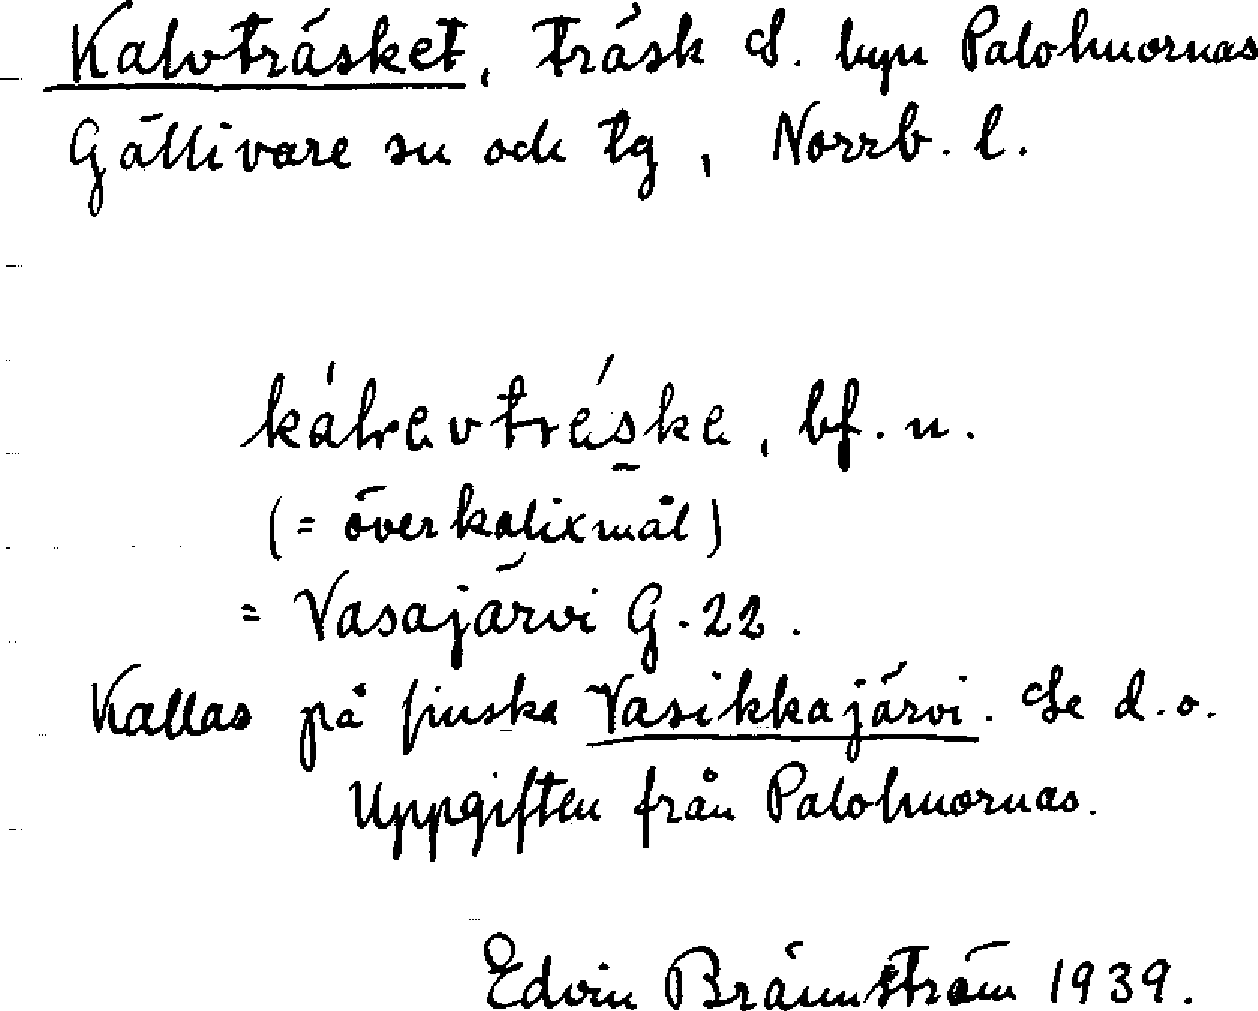 Kalvträsket, träsk S. byn Palohuornas
Gällivare sn och tg, Norrb. l.
bf. n.
(= överkalixmål)
= Vasajärvi G. 22.
Kallas på finska Vasikkajärvi. Se d.o.
Uppgiften från Palohuornas.
Edvin Brännström 1939.